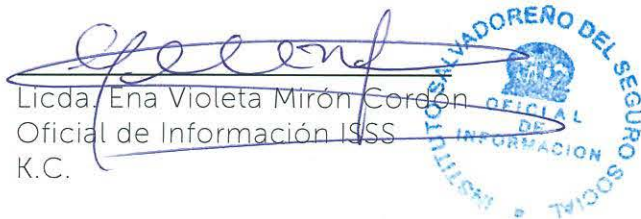 Licda. Ena Violeta Mirón Cordón
Oficial de Información ISSS
K.C.
INSTITUTO SALVADOREÑO DEL SEGURO SOCIAL
OFICIAL
DE
INFORMACION